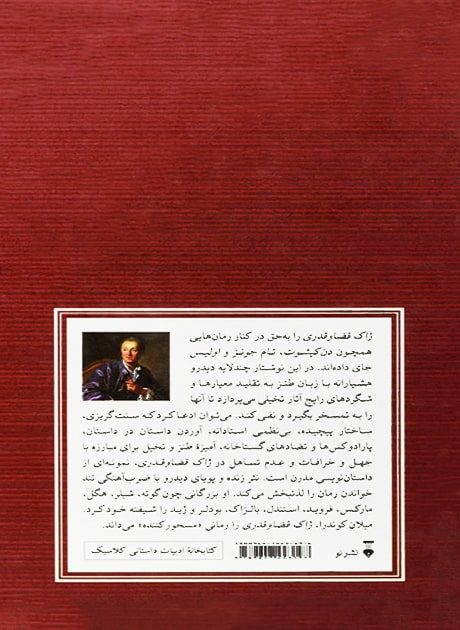 ژاک قضاوقدری را به‌حق در کنار رمان‌هایی
همچون دن‌کیشوت، تام جونز و اولیس
جای داده‌اند. در این نوشتار چندلایه دیدرو
هشیارانه با زبان طنز به تقلید معیارها و
شگردهای رایج آثار تخیلی می‌پردازد تا آنها
را به تمسخر بگیرد و نفی کند. می‌توان ادعا کرد که سنت‌گریزی،
ساختار پیچیده، بی‌نظمی استادانه، آوردن داستان در داستان،
پارادوکس‌ها و تضادهای گستاخانه، آمیزهٔ طنز و تخیل برای مبارزه با
جهل و خرافات و عدم تساهل در ژاک قضاوقدری، نمونه‌ای از
داستان‌نویسی مدرن است. نثر زنده و پویای دیدرو با ضرب‌آهنگی تند
خواندن رمان را لذتبخش می‌کند. او بزرگانی چون گوته، شیلر، هگل،
مارکس، فروید، استندل، بالزاک، بودلر و ژید را شیفته خود کرد.
میلان کوندرا، ژاک قضاوقدری را رمانی «مسحورکننده» می‌داند.
نشر نو
کتابخانهٔ ادبیات داستانی کلاسیک